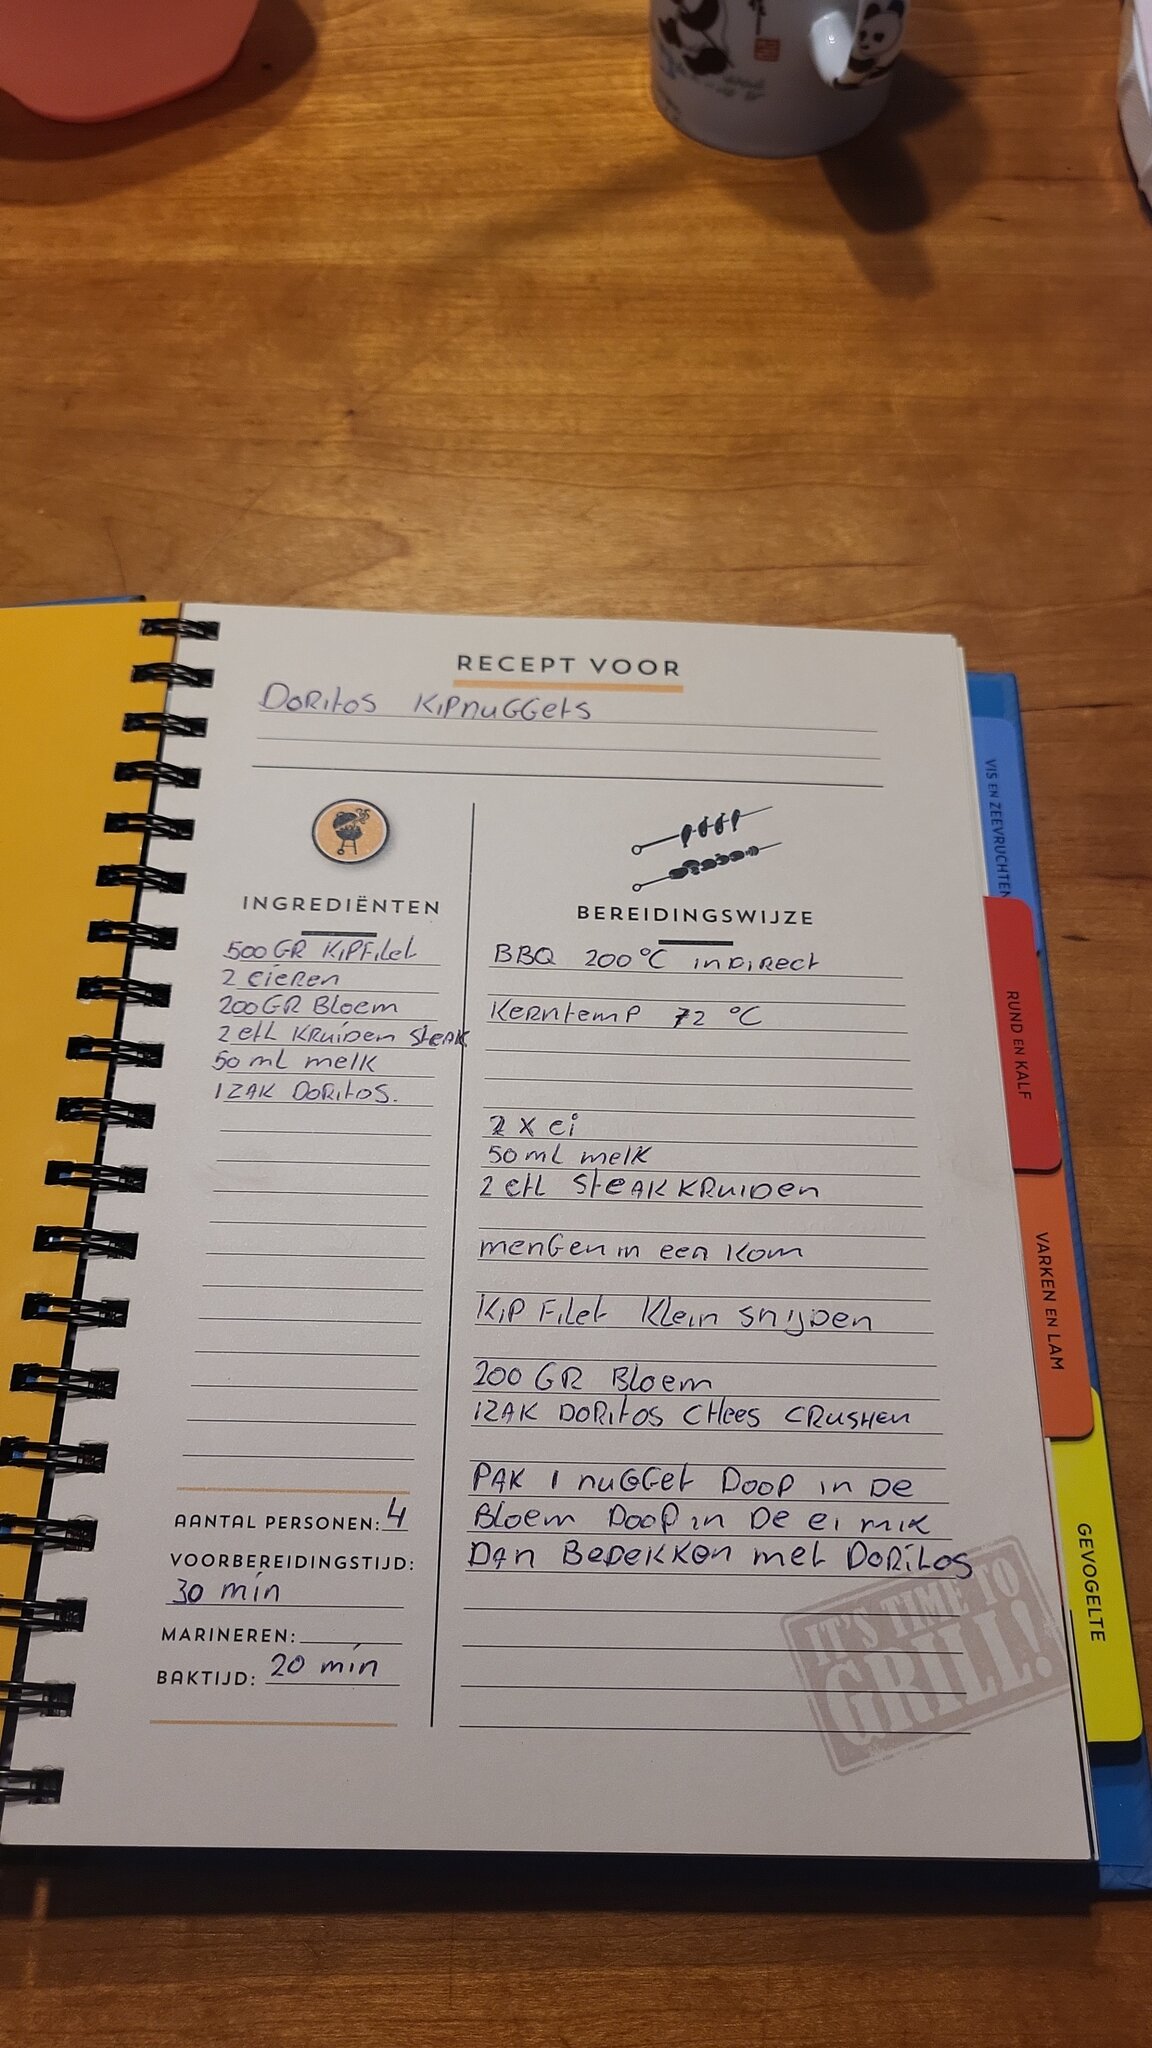 RECEPT VOOR
Doritos Kipnuggets
INGREDIËNTEN
500 GR KipFilet
2 eieren
200 GR Bloem
2 etl Kruiden Steak
50 ml melk
1 ZAK Doritos.
AANTAL PERSONEN: 4
VOORBEREIDINGSTIJD:
30 min
MARINEREN:
BAKTIJD: 20 min
BEREIDINGSWIJZE
BBQ 200°C indirect
Kerntemp 72 °C
2 x ei
50 ml melk
2 etl Steak Kruiden
mengen in een kom
Kip Filet Klein snijden
200 GR Bloem
1 ZAK Doritos CHees CRUSHen
PAK 1 nugget Doop in De
Bloem Doop in De ei mix
DAn Bedekken met Doritos
IT'S TIME TO
GRILL!
VIS EN ZEEVRUCHTEN
RUND EN KALF
VARKEN EN LAM
GEVOGELTE